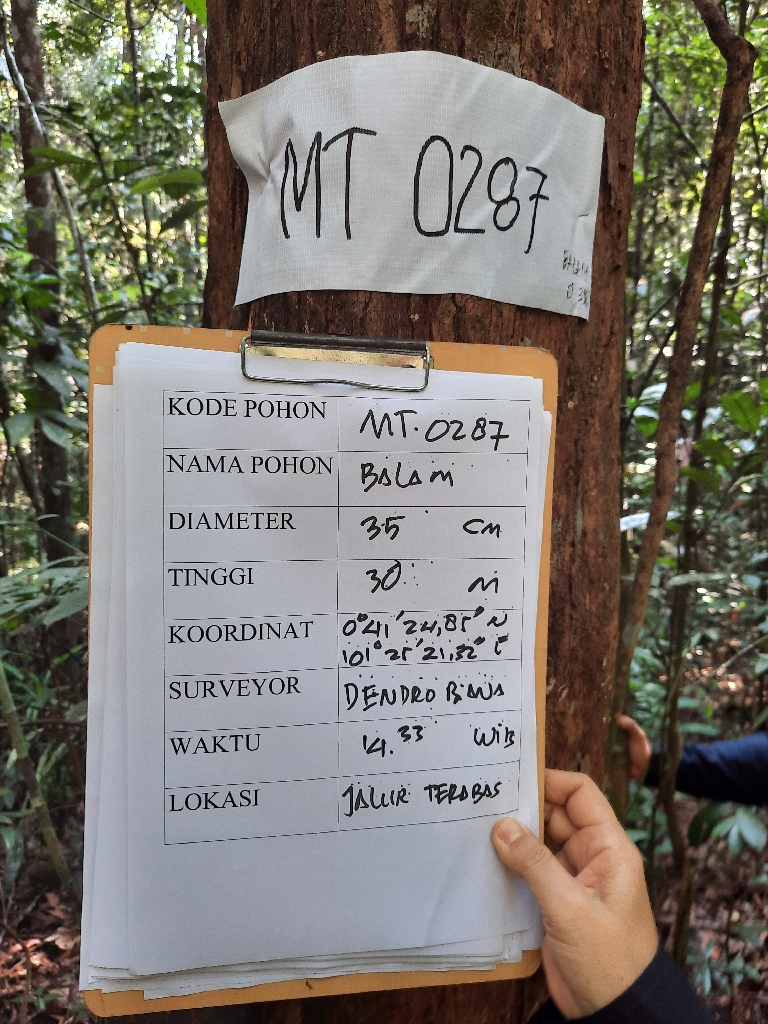 MT 0287
KODE POHON MT. 0287
NAMA POHON BALAM
DIAMETER 35 CM
TINGGI 30 M
KOORDINAT 0°41'24,85" N
101°25'21,32" E
SURVEYOR DENDRO
WAKTU 14.33 WIB
LOKASI JALUR TERABAS